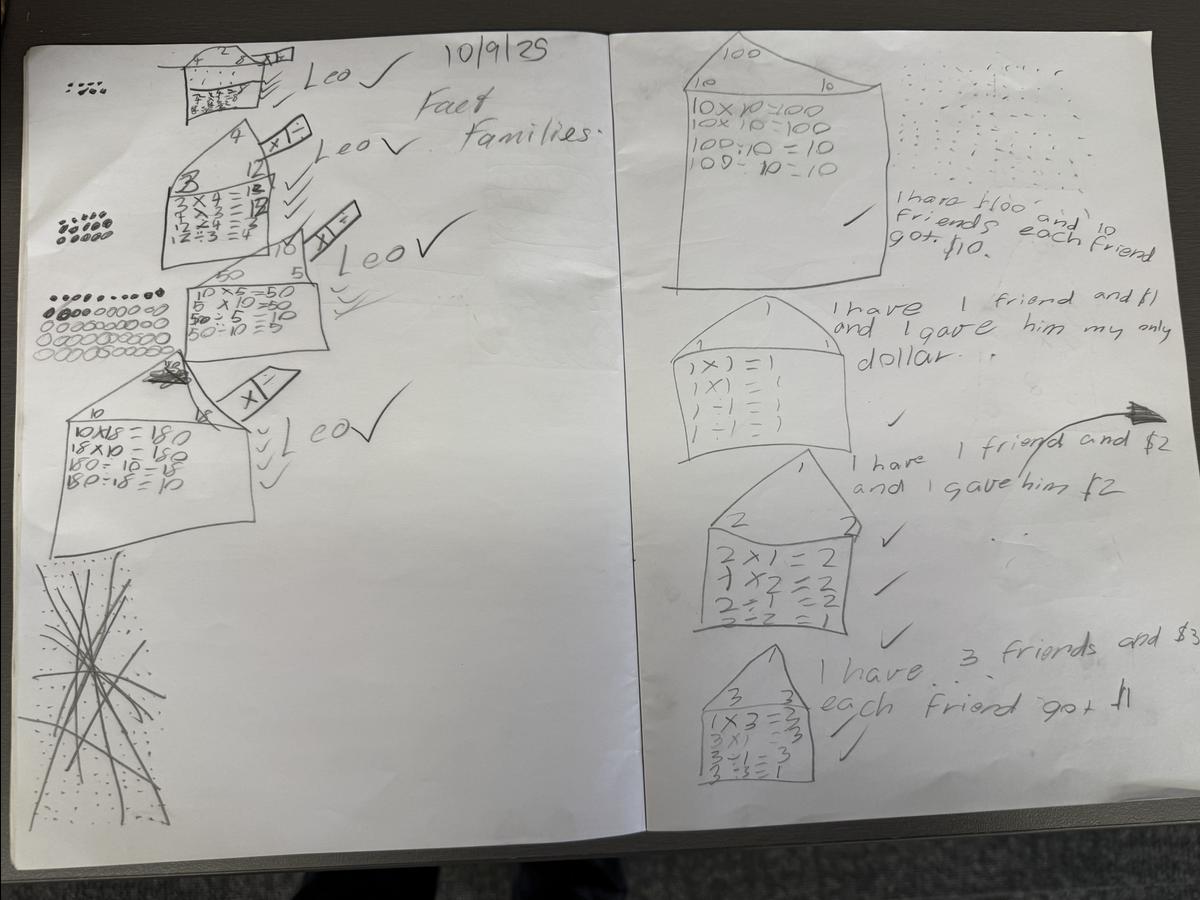 10/9/25
Fact
Families.
2
4 8
×÷
Leo
4
3 12
×÷
3 × 4 = 12
4 × 3 = 12
12 ÷ 4 = 3
12 ÷ 3 = 4
Leo
10
50 5
×÷
10 × 5 = 50
5 × 10 = 50
50 ÷ 5 = 10
50 ÷ 10 = 5
Leo
10 18
×÷
10 × 18 = 180
18 × 10 = 180
180 ÷ 10 = 18
180 ÷ 18 = 10
Leo
100
10 10
10 × 10 = 100
10 × 10 = 100
100 ÷ 10 = 10
100 ÷ 10 = 10
I have $100 and 10
Friends each friend
got $10.
1
1 1
1 × 1 = 1
1 × 1 = 1
1 ÷ 1 = 1
1 ÷ 1 = 1
I have 1 friend and $1
and I gave him my only
dollar.
1
2 2
2 × 1 = 2
1 × 2 = 2
2 ÷ 1 = 2
2 ÷ 2 = 1
I have 1 friend and $2
and I gave him $2
1
3 3
1 × 3 = 3
3 × 1 = 3
3 ÷ 1 = 3
3 ÷ 3 = 1
I have 3 friends and $3
each friend got $1